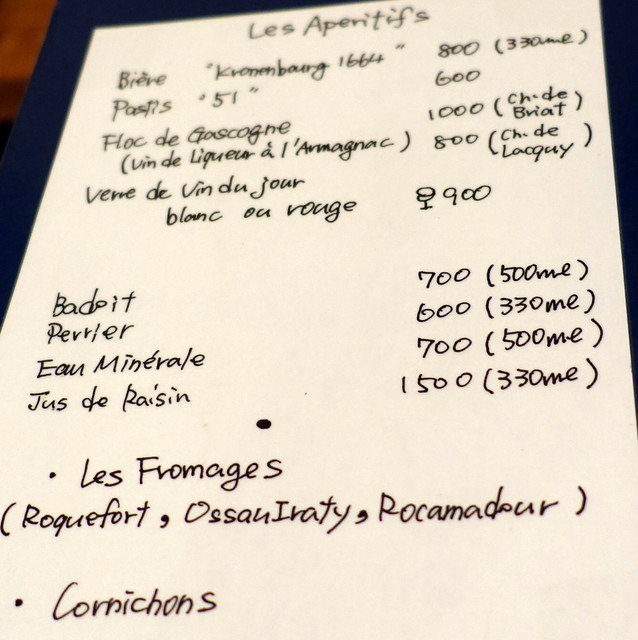 Les Aperitifs
Bière "Kronenbourg 1664" 800 (330ml)
Pastis "51" 600
Floc de Gascogne 1000 (Ch. de Briat)
(Vin de Liqueur à l'Armagnac) 800 (Ch. de Lacquy)
Verre de Vin du jour
blanc ou rouge 900
Badoit 700 (500ml)
Perrier 600 (330ml)
Eau Minérale 700 (500ml)
Jus de Raisin 1500 (330ml)
• Les Fromages
(Roquefort, Ossau Iraty, Rocamadour)
• Cornichons